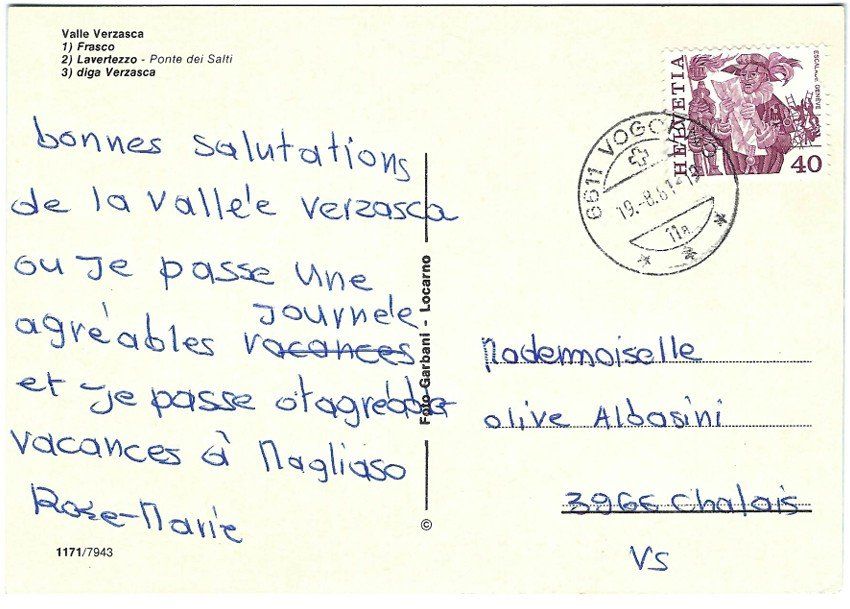 Valle Verzasca
1) Frasco
2) Lavertezzo - Ponte dei Salti
3) diga Verzasca
bonnes salutations
de la vallée verzasca
ou je passe une
journéle
agréables vacances
et je passe
vacances à Magliaso
Rose-Marie
1171/7943
Foto Garbani - Locarno
©
HELVETIA
GENÈVE
40
6611 VOGO
19.-8.81-
11a
Mademoiselle
olive Albasini
3966 Chalais
VS